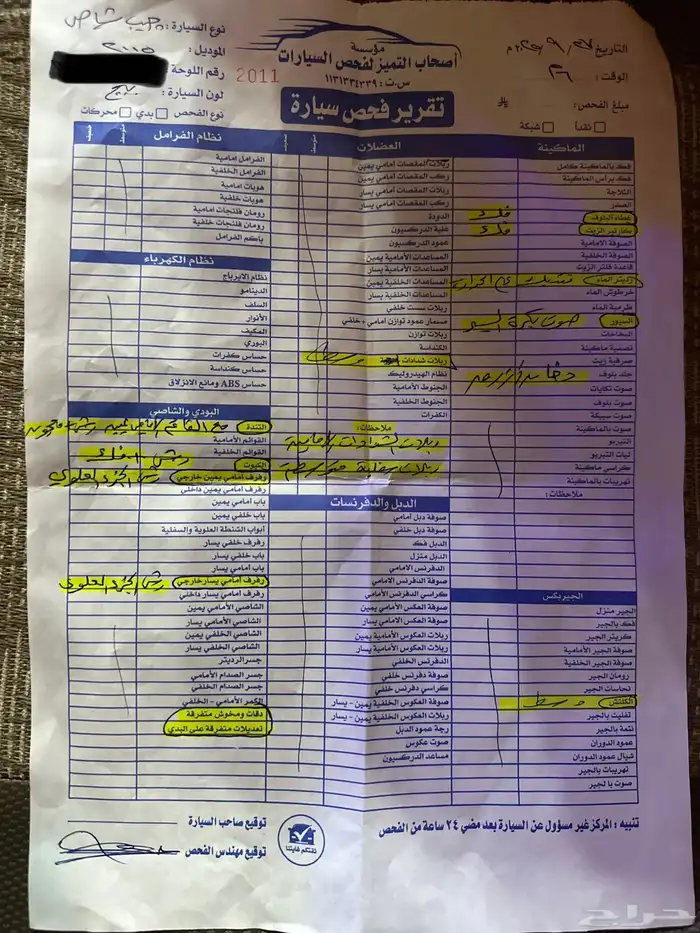 مؤسسة
أصحاب التميز لفحص السيارات
س.ت : ١١٣١٣٣٤٣٣٩
2011
تقرير فحص سيارة
التاريخ
الوقت :
مبلغ الفحص :
نقداً شبكة
نوع السيارة :
الموديل :
رقم اللوحة :
لون السيارة : بيج
نوع الفحص : بدي محركات
الماكينة
فك بالماكينة كامل
فك برأس الماكينة
الثلاجة
الصدر
غطاء البلوف
كارتير الزيت
الصوفة الامامية
الصوفة الخلفية
قاعدة فلتر الزيت
رديتر الماء
خرطوش الماء
طرمبة الماء
السيور
البخاخات
تصفية ماكينة
صرفية زيت
جلد بلوف
صوت تكايات
صوت بلوف
صوت سبيكة
صوت بالماكينة
التيربو
ليات التيربو
كراسي ماكينة
تهريبات بالماكينة
ملاحظات :
الجيربكس
الجير منزل
فك بالجير
كريتر الجير
صوفة الجير الأمامية
صوفة الجير الخلفية
رومان الجير
نحاسات الجير
الكلتش وسط
تفليت بالجير
نتعة بالجير
عمود الدوران
شيال عمود الدوران
تهريبات بالجير
صوت با لجير
العضلات
ربلات المقصات امامي يمين
ركب المقصات امامي يمين
ربلات المقصات امامي يسار
ركب المقصات امامي يسار
الدودة
علبة الدركسيون
عمود الدركسيون
المساعدات الأمامية يمين
المساعدات الأمامية يسار
المساعدات الخلفية يمين
المساعدات الخلفية يسار
ربلات سست خلفي
مسمار عمود توازن امامي + خلفي
ربلات توازن
الكنداسة
ربلات شدادات وسط
نظام الهيدروليك
الجنوط الأمامية
الجنوط الخلفية
الكفرات
ملاحظات :
ربلات شدادات امامية
الدبل والدفرنسات
صوفة دبل أمامي
صوفة دبل خلفي
الدبل فك
الدبل منزل
الدفرنس الامامي
صوفة الدفرنس الامامي
كراسي الدفرنس الأمامي
صوفة العكس الأمامي يمين
صوفة العكس الامامي يسار
ربلات العكوس الأمامية يمين
ربلات العكوس الأمامية يسار
الدفرنس الخلفي
صوفة دفرنس خلفي
كراسي دفرنس خلفي
صوفة العكوس الخلفية يمين - يسار
ربلات العكوس الخلفية يمين - يسار
رجة عمود الدبل
صوت عكوس
مساعد الدركسيون
نظام الفرامل
الفرامل امامية
الفرامل الخلفية
هوبات امامية
هوبات خلفية
رومان فلنجات امامية
رومان فلنجات خلفية
باكم الفرامل
نظام الكهرباء
نظام الايرباج
الدينامو
السلف
الأنوار
المكيف
البوري
حساس كفرات
حساس كنداسة
حساس ABS ومانع الانزلاق
البودي والشاصي
التندة
القوائم الأمامية
القوائم الخلفية
الكبوت
رفرف أمامي يمين خارجي رش الجزء العلوي
رفرف أمامي يمين داخلي
باب أمامي يمين
باب خلفي يمين
أبواب الشنطة العلوية والسفلية
رفرف خلفي يسار
باب خلفي يسار
باب امامي يسار
رفرف أمامي يسار خارجي رش الجزء العلوي
رفرف أمامي يسار داخلي
الشاصي الأمامي يمين
الشاصي الأمامي يسار
الشاصي الخلفي يمين
الشاصي الخلفي يسار
جسر الرديتر
جسر الصدام الأمامي
جسر الصدام الخلفي
الكمر الأمامي - الخلفي
دقات ومخوش متفرقة
تعديلات متفرقة على البدي
تنبيه : المركز غير مسؤول عن السيارة بعد مضي ٢٤ ساعة من الفحص
توقيع صاحب السيارة
توقيع مهندس الفحص
ثقتكم غايتنا
حراج